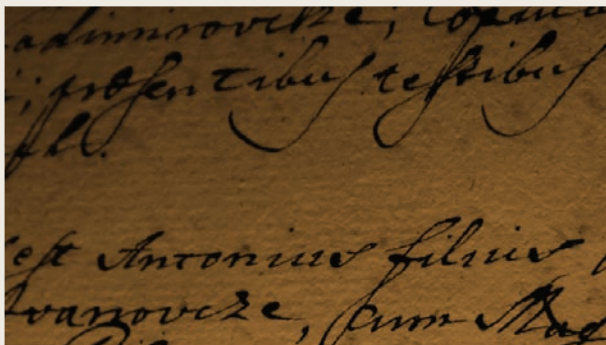 adimirovicze, Copula
præsentibus testibus
fl.
est Antonius filius
vanovicze, cum Mag